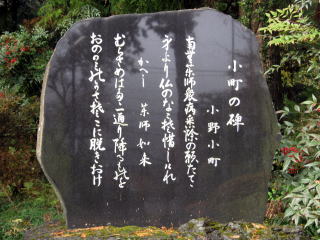 小町の碑
小野小町
南無薬師衆病悉除の願たてゝ
身より仏のなこそ惜しけれ
かへし 薬師如来
むらさめはたゞ一通り降るものを
おのがみのかさそこに脱ぎおけ